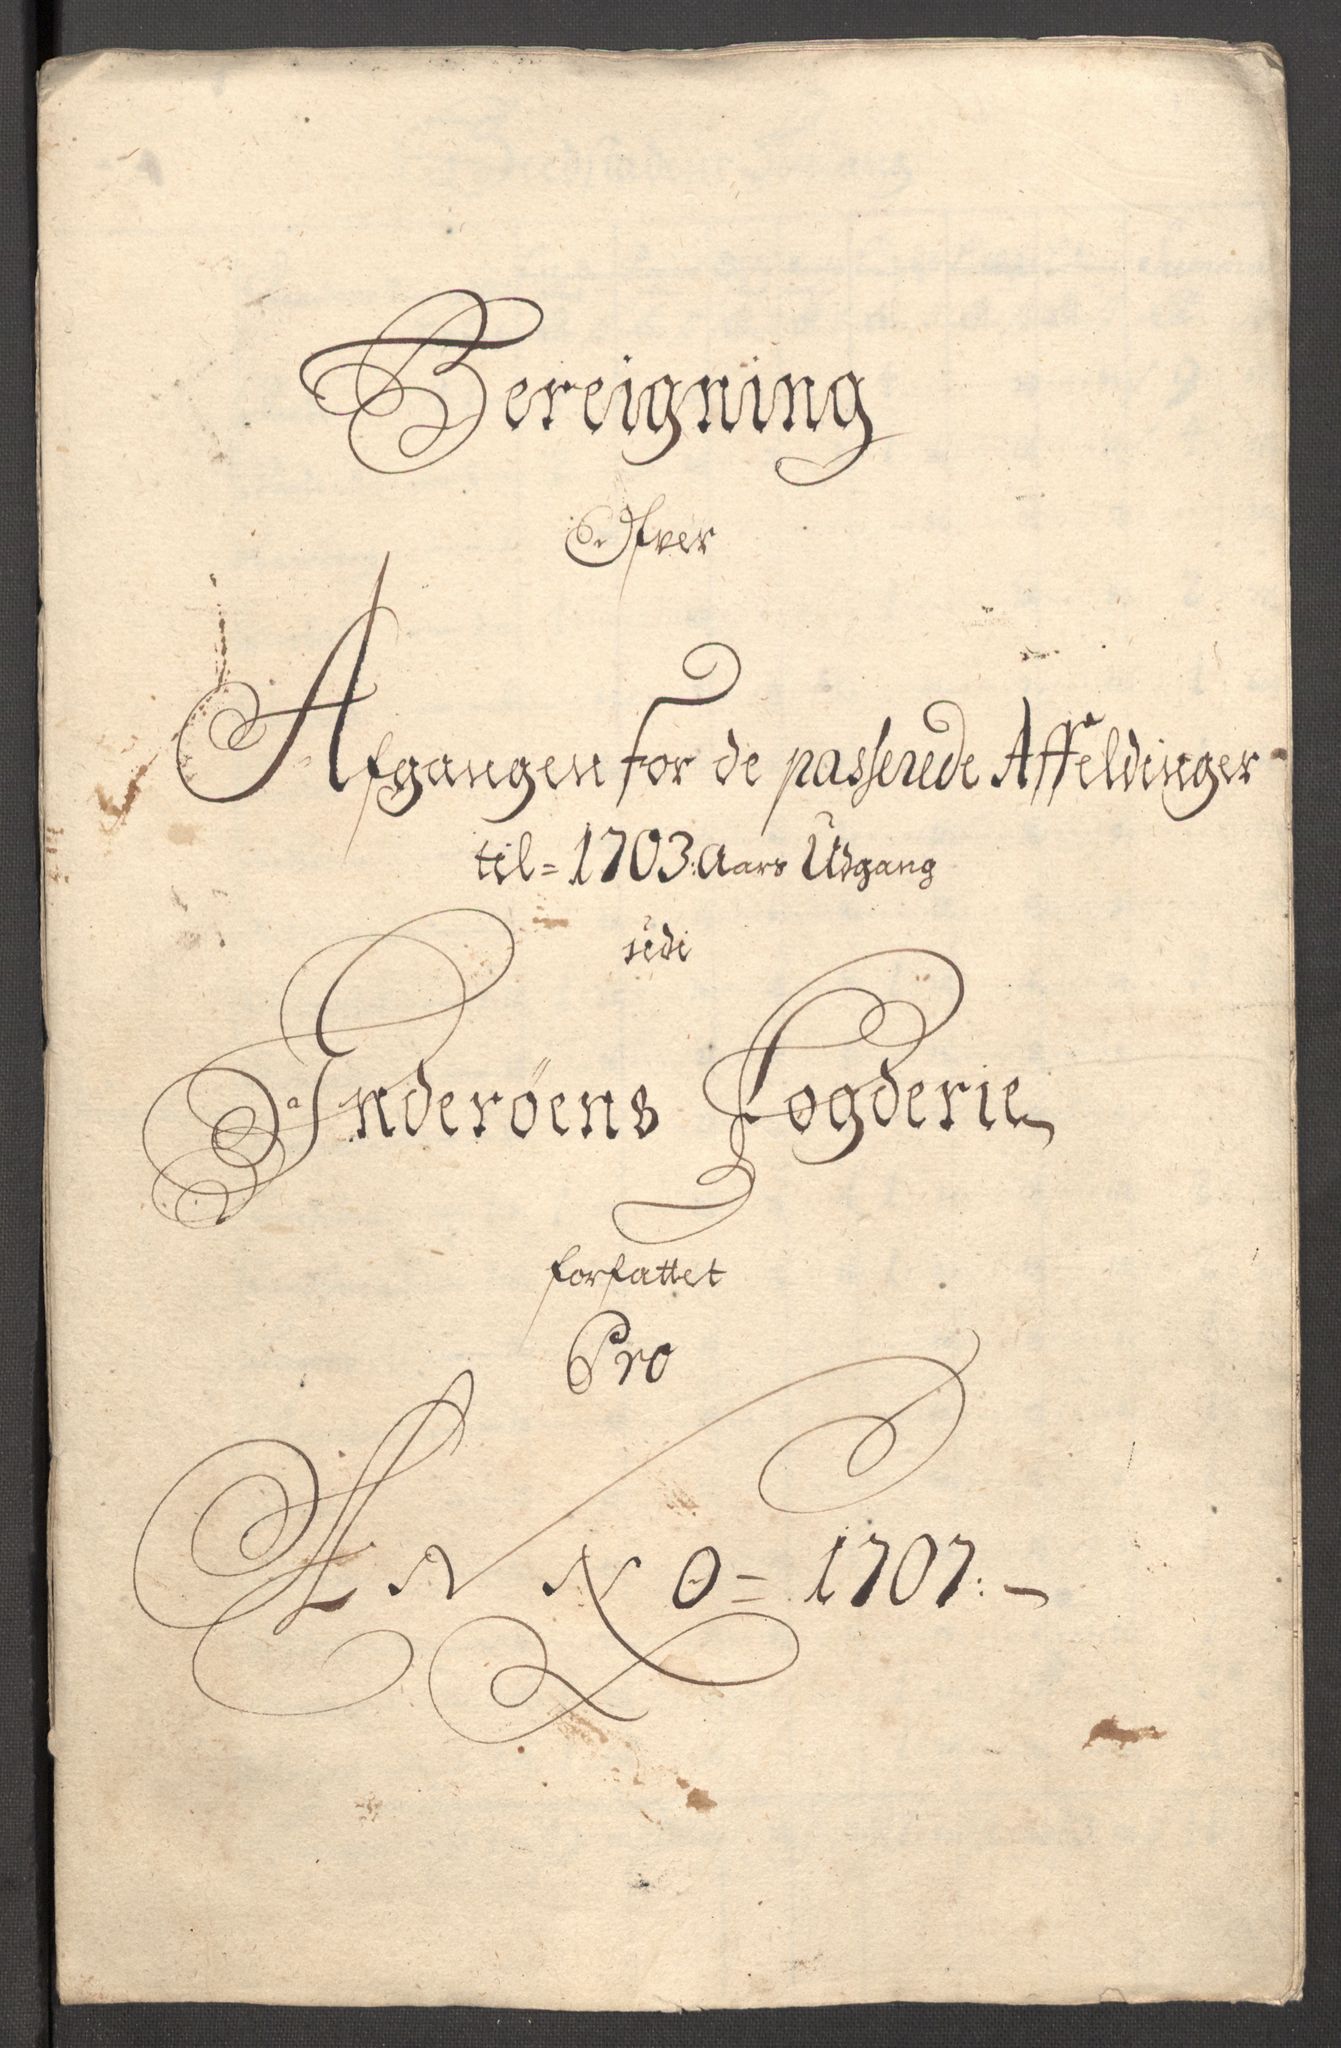 Bereigning
Ofver
Afgangen for de passerede Affeldinger
til = 1703: Aars Udgang
udi
Inderöens Fogderie
forfattet
Pro
ANNO = 1707: -